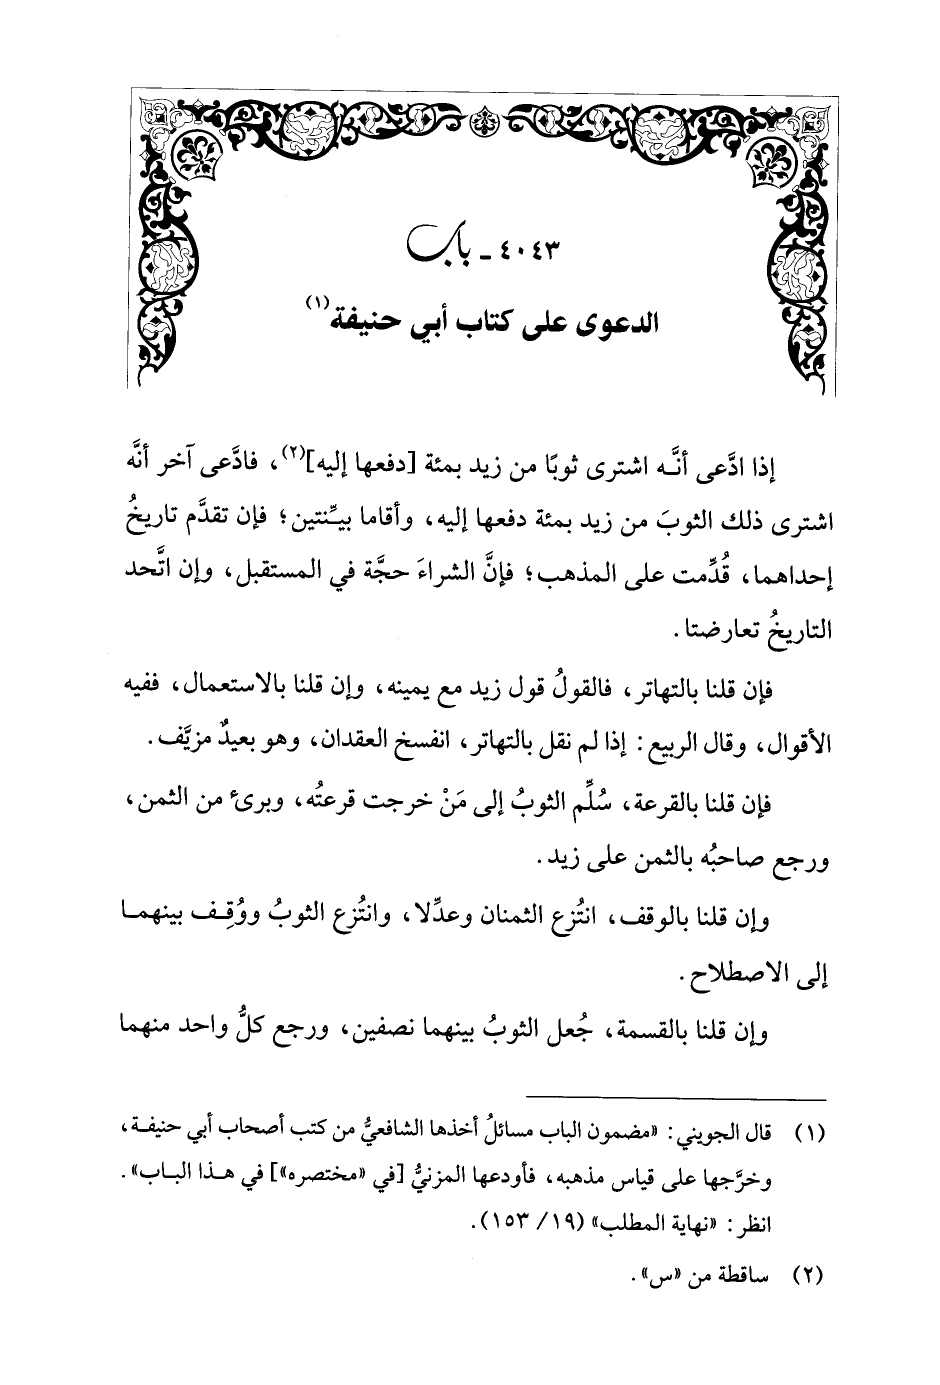 ٤٠٤٣ - باب
الدعوى على كتاب أبي حنيفة(١)
إذا ادَّعى أنَّه اشترى ثوبًا من زيد بمئة [دفعها إليه](٢)، فادَّعى آخر أنَّه
اشترى ذلك الثوبَ من زيد بمئة دفعها إليه، وأقاما بيِّنتين؛ فإن تقدَّم تاريخُ
إحداهما، قُدِّمت على المذهب؛ فإنَّ الشراءَ حجَّة في المستقبل، وإن اتَّحد
التاريخُ تعارضتا.
فإن قلنا بالتهاتر، فالقولُ قول زيد مع يمينه، وإن قلنا بالاستعمال، ففيه
الأقوال، وقال الربيع: إذا لم نقل بالتهاتر، انفسخ العقدان، وهو بعيدٌ مزيَّف.
فإن قلنا بالقرعة، سُلِّم الثوبُ إلى مَنْ خرجت قرعتُه، وبرئ من الثمن،
ورجع صاحبُه بالثمن على زيد.
وإن قلنا بالوقف، انتُزع الثمنان وعدِّلا، وانتُزع الثوبُ ووُقِف بينهما
إلى الاصطلاح.
وإن قلنا بالقسمة، جُعل الثوبُ بينهما نصفين، ورجع كلُّ واحد منهما
(١) قال الجويني: «مضمون الباب مسائلُ أخذها الشافعيُّ من كتب أصحاب أبي حنيفة،
وخرَّجها على قياس مذهبه، فأودعها المزنيُّ [في «مختصره»] في هذا الباب».
انظر: «نهاية المطلب» (١٩/ ١٥٣).
(٢) ساقطة من «س».